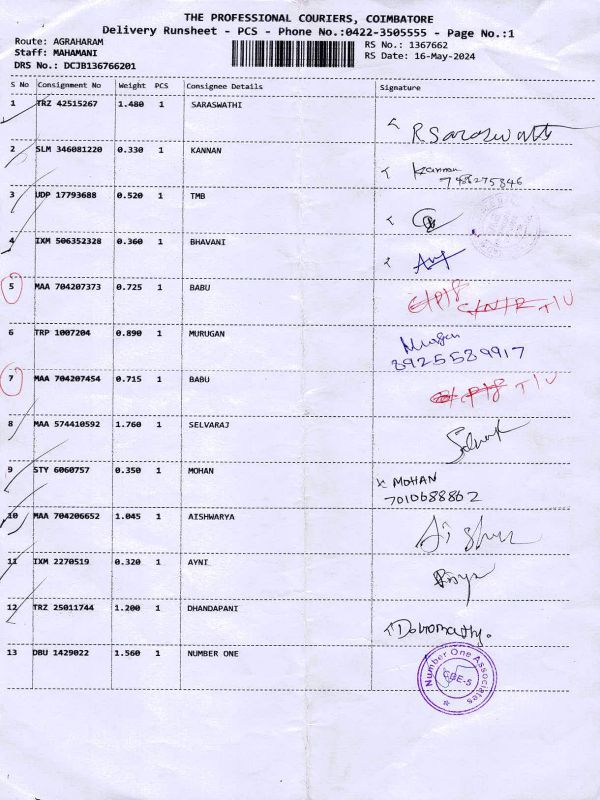 THE PROFESSIONAL COURIERS, COIMBATORE
Delivery Runsheet - PCS - Phone No.:0422-3505555 - Page No.:1
Route: AGRAHARAM
Staff: MAHAMANI
DRS No.: DCJB136766201
RS No.: 1367662
RS Date: 16-May-2024
S No Consignment No Weight PCS Consignee Details Signature
1 TRZ 42515267 1.480 1 SARASWATHI
R Saraswathi
2 SLM 346081220 0.330 1 KANNAN
Kannan
3 UDP 17793688 0.520 1 TMB
4 IXM 506352328 0.360 1 BHAVANI
5 MAA 704207373 0.725 1 BABU
T/U
6 TRP 1007204 0.890 1 MURUGAN
Murugan
8925589917
7 MAA 704207454 0.715 1 BABU
T/U
8 MAA 574410592 1.760 1 SELVARAJ
9 STY 6060757 0.350 1 MOHAN
MOHAN
7010688862
10 MAA 704206652 1.045 1 AISHWARYA
11 IXM 2270519 0.320 1 AYNI
12 TRZ 25011744 1.200 1 DHANDAPANI
13 DBU 1429022 1.560 1 NUMBER ONE
Number One Associates
CBE-5